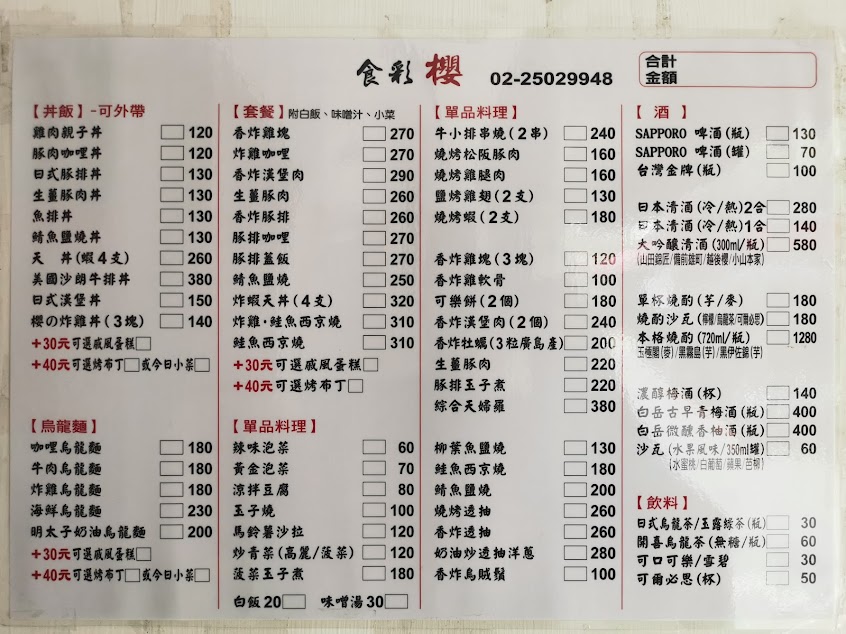 食彩 櫻 02-25029948
合計
金額
【丼飯】-可外帶
雞肉親子丼 120
豚肉咖哩丼 120
日式豚排丼 130
生薑豚肉丼 130
魚排丼 130
鯖魚鹽燒丼 130
天 丼(蝦4支) 260
美國沙朗牛排丼 380
日式漢堡丼 150
櫻の炸雞丼(3塊) 140
+30元可選戚風蛋糕
+40元可選烤布丁 或今日小菜
【烏龍麵】
咖哩烏龍麵 180
牛肉烏龍麵 180
炸雞烏龍麵 180
海鮮烏龍麵 230
明太子奶油烏龍麵 200
+30元可選戚風蛋糕
+40元可選烤布丁 或今日小菜
【套餐】附白飯、味噌汁、小菜
香炸雞塊 270
炸雞咖哩 270
香炸漢堡肉 290
生薑豚肉 260
香炸豚排 260
豚排咖哩 270
豚排蓋飯 270
鯖魚鹽燒 250
炸蝦天丼(4支) 320
炸雞·鮭魚西京燒 310
鮭魚西京燒 310
+30元可選戚風蛋糕
+40元可選烤布丁
【單品料理】
辣味泡菜 60
黃金泡菜 70
涼拌豆腐 80
玉子燒 100
馬鈴薯沙拉 120
炒青菜(高麗/菠菜) 120
菠菜玉子煮 180
白飯20 味噌湯30
【單品料理】
牛小排串燒(2串) 240
燒烤松阪豚肉 160
燒烤雞腿肉 160
鹽烤雞翅(2支) 130
燒烤蝦(2支) 180
香炸雞塊(3塊) 120
香炸雞軟骨 100
可樂餅(2個) 180
香炸漢堡肉(2個) 240
香炸牡蠣(3粒廣島產) 200
生薑豚肉 220
豚排玉子煮 220
綜合天婦羅 380
柳葉魚鹽燒 130
鮭魚西京燒 180
鯖魚鹽燒 200
燒烤透抽 260
香炸透抽 260
奶油炒透抽洋蔥 280
香炸烏賊鬚 100
【酒】
SAPPORO 啤酒(瓶) 130
SAPPORO 啤酒(罐) 70
台灣金牌(瓶) 100
日本清酒(冷/熱)2合 280
日本清酒(冷/熱)1合 140
大吟釀清酒(300ml/瓶) 580
(山田錦匠/備前雄町/越後櫻/小山本家)
單杯燒酌(芋/麥) 180
燒酌沙瓦(檸檬/烏龍茶/可爾必思) 180
本格燒酌(720ml/瓶) 1280
玉極閣(麥)/黑霧島(芋)/黑伊佐錦(芋)
濃醇梅酒(杯) 140
白岳古早青梅酒(瓶) 400
白岳微醺香柚酒(瓶) 400
沙瓦(水果風味/350ml罐) 60
(水蜜桃/白葡萄/蘋果/芭柳)
【飲料】
日式烏龍茶/玉露綠茶(瓶) 30
開喜烏龍茶(無糖/瓶) 60
可口可樂/雪碧 30
可爾必思(杯) 50